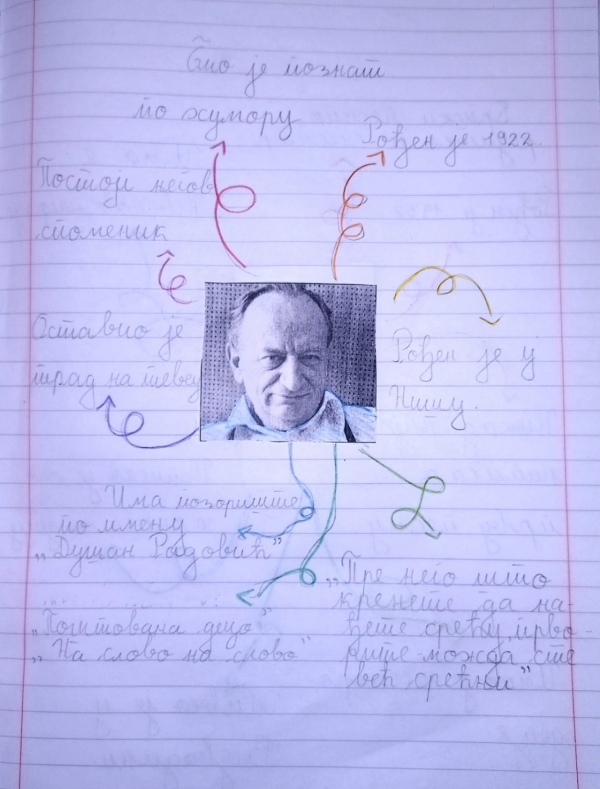 Био је познат
по хумору
Рођен је 1922.
Постоји негов
споменик
Оставио је
трад на тевеу
Рођен је у
Нишу.
Има позориште
по имену
„Душан Радовић”
„Поштована децо”
„На слово на слово”
„Пре него што
кренете да на-
ђете срећу, прво-
рите можда сте
већ срећни”